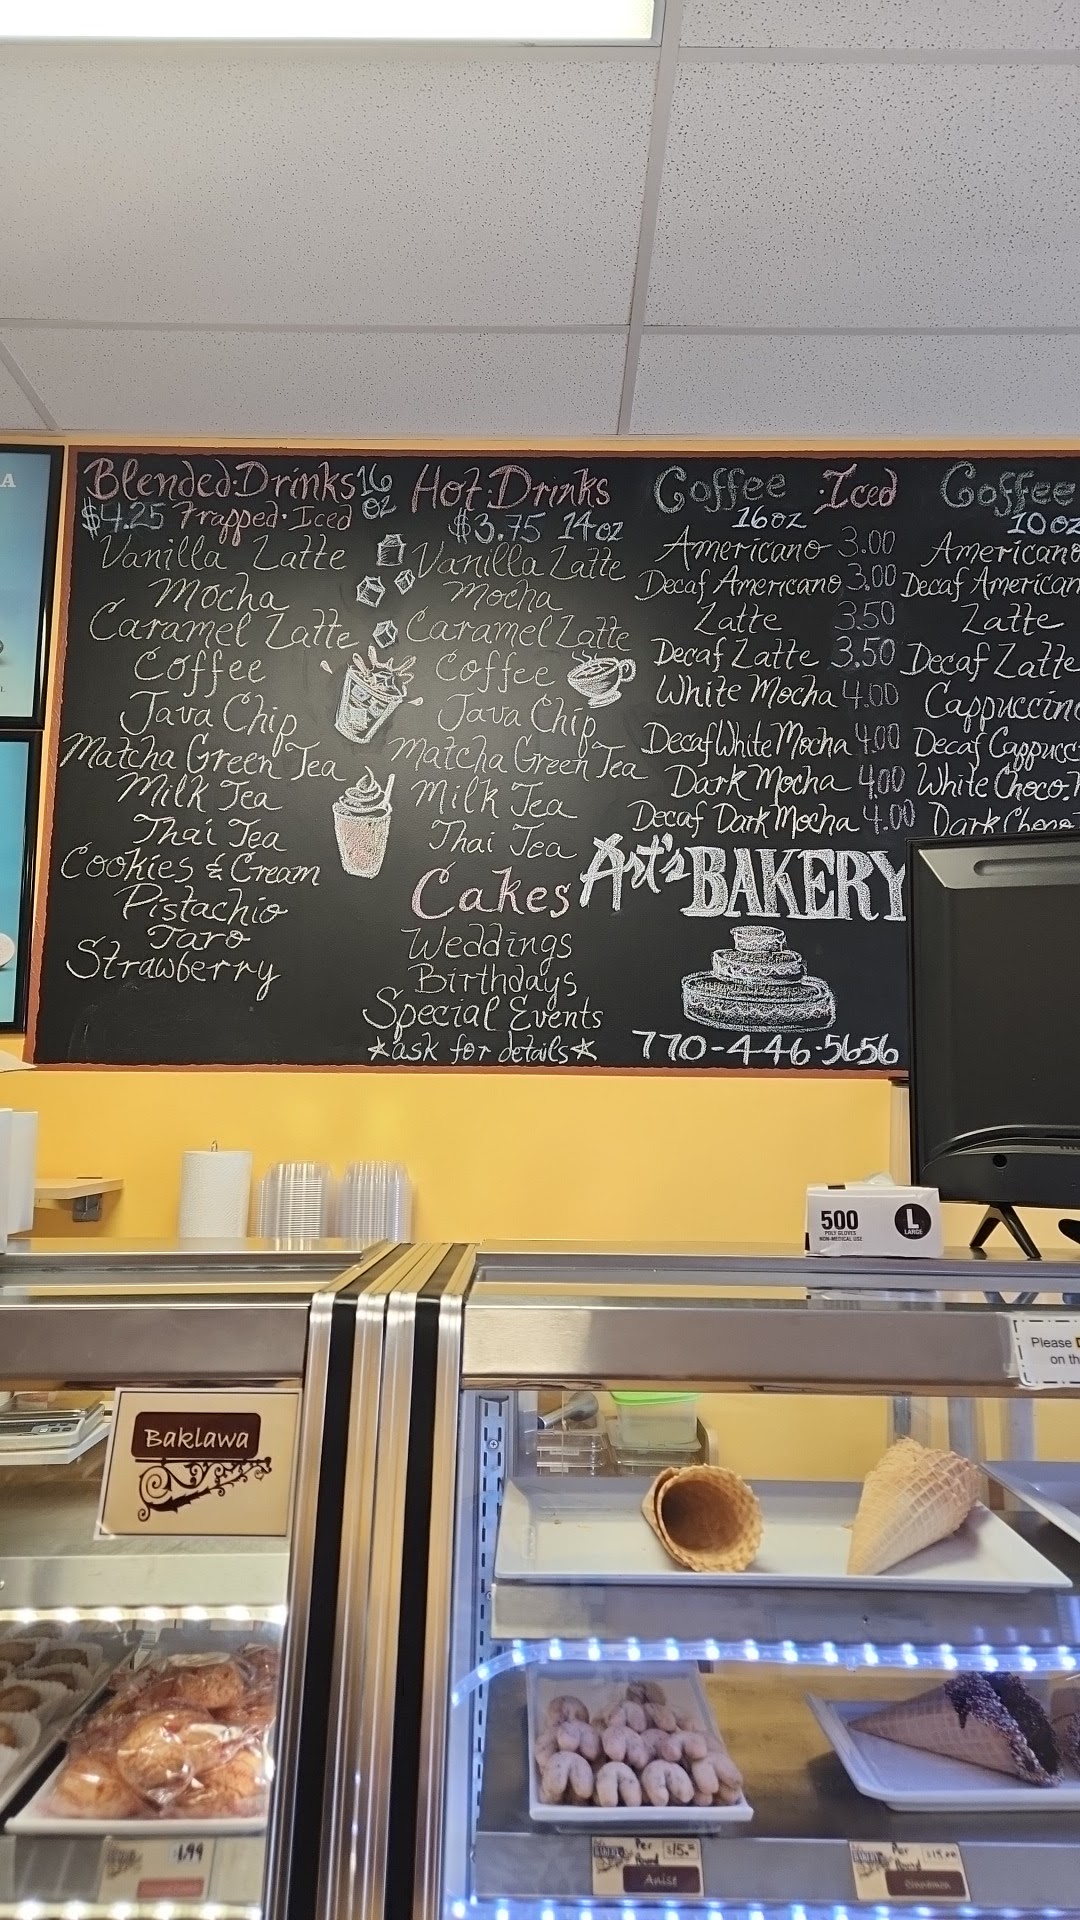 A
Blended Drinks 16 oz
$4.25 Frapped · Iced
Vanilla Latte
Mocha
Caramel Latte
Coffee
Java Chip
Matcha Green Tea
Milk Tea
Thai Tea
Cookies & Cream
Pistachio
Taro
Strawberry
Hot Drinks
$3.75 14oz
Vanilla Latte
Mocha
Caramel Latte
Coffee
Java Chip
Matcha Green Tea
Milk Tea
Thai Tea
Cakes
Weddings
Birthdays
Special Events
*ask for details*
Coffee · Iced
16oz
Americano 3.00
Decaf Americano 3.00
Latte 3.50
Decaf Latte 3.50
White Mocha 4.00
Decaf White Mocha 4.00
Dark Mocha 4.00
Decaf Dark Mocha 4.00
Art's BAKERY
770-446-5656
Coffee
10oz
Americano
Decaf American
Latte
Decaf Latte
Cappuccino
Decaf Cappucc
White Choco.
Dark
500
POLY GLOVES
NON-MEDICAL USE
L
LARGE
Please
on th
Baklawa
1.99
Per
Pound
$15.00
Anise
Per
Pound
Cinnamon